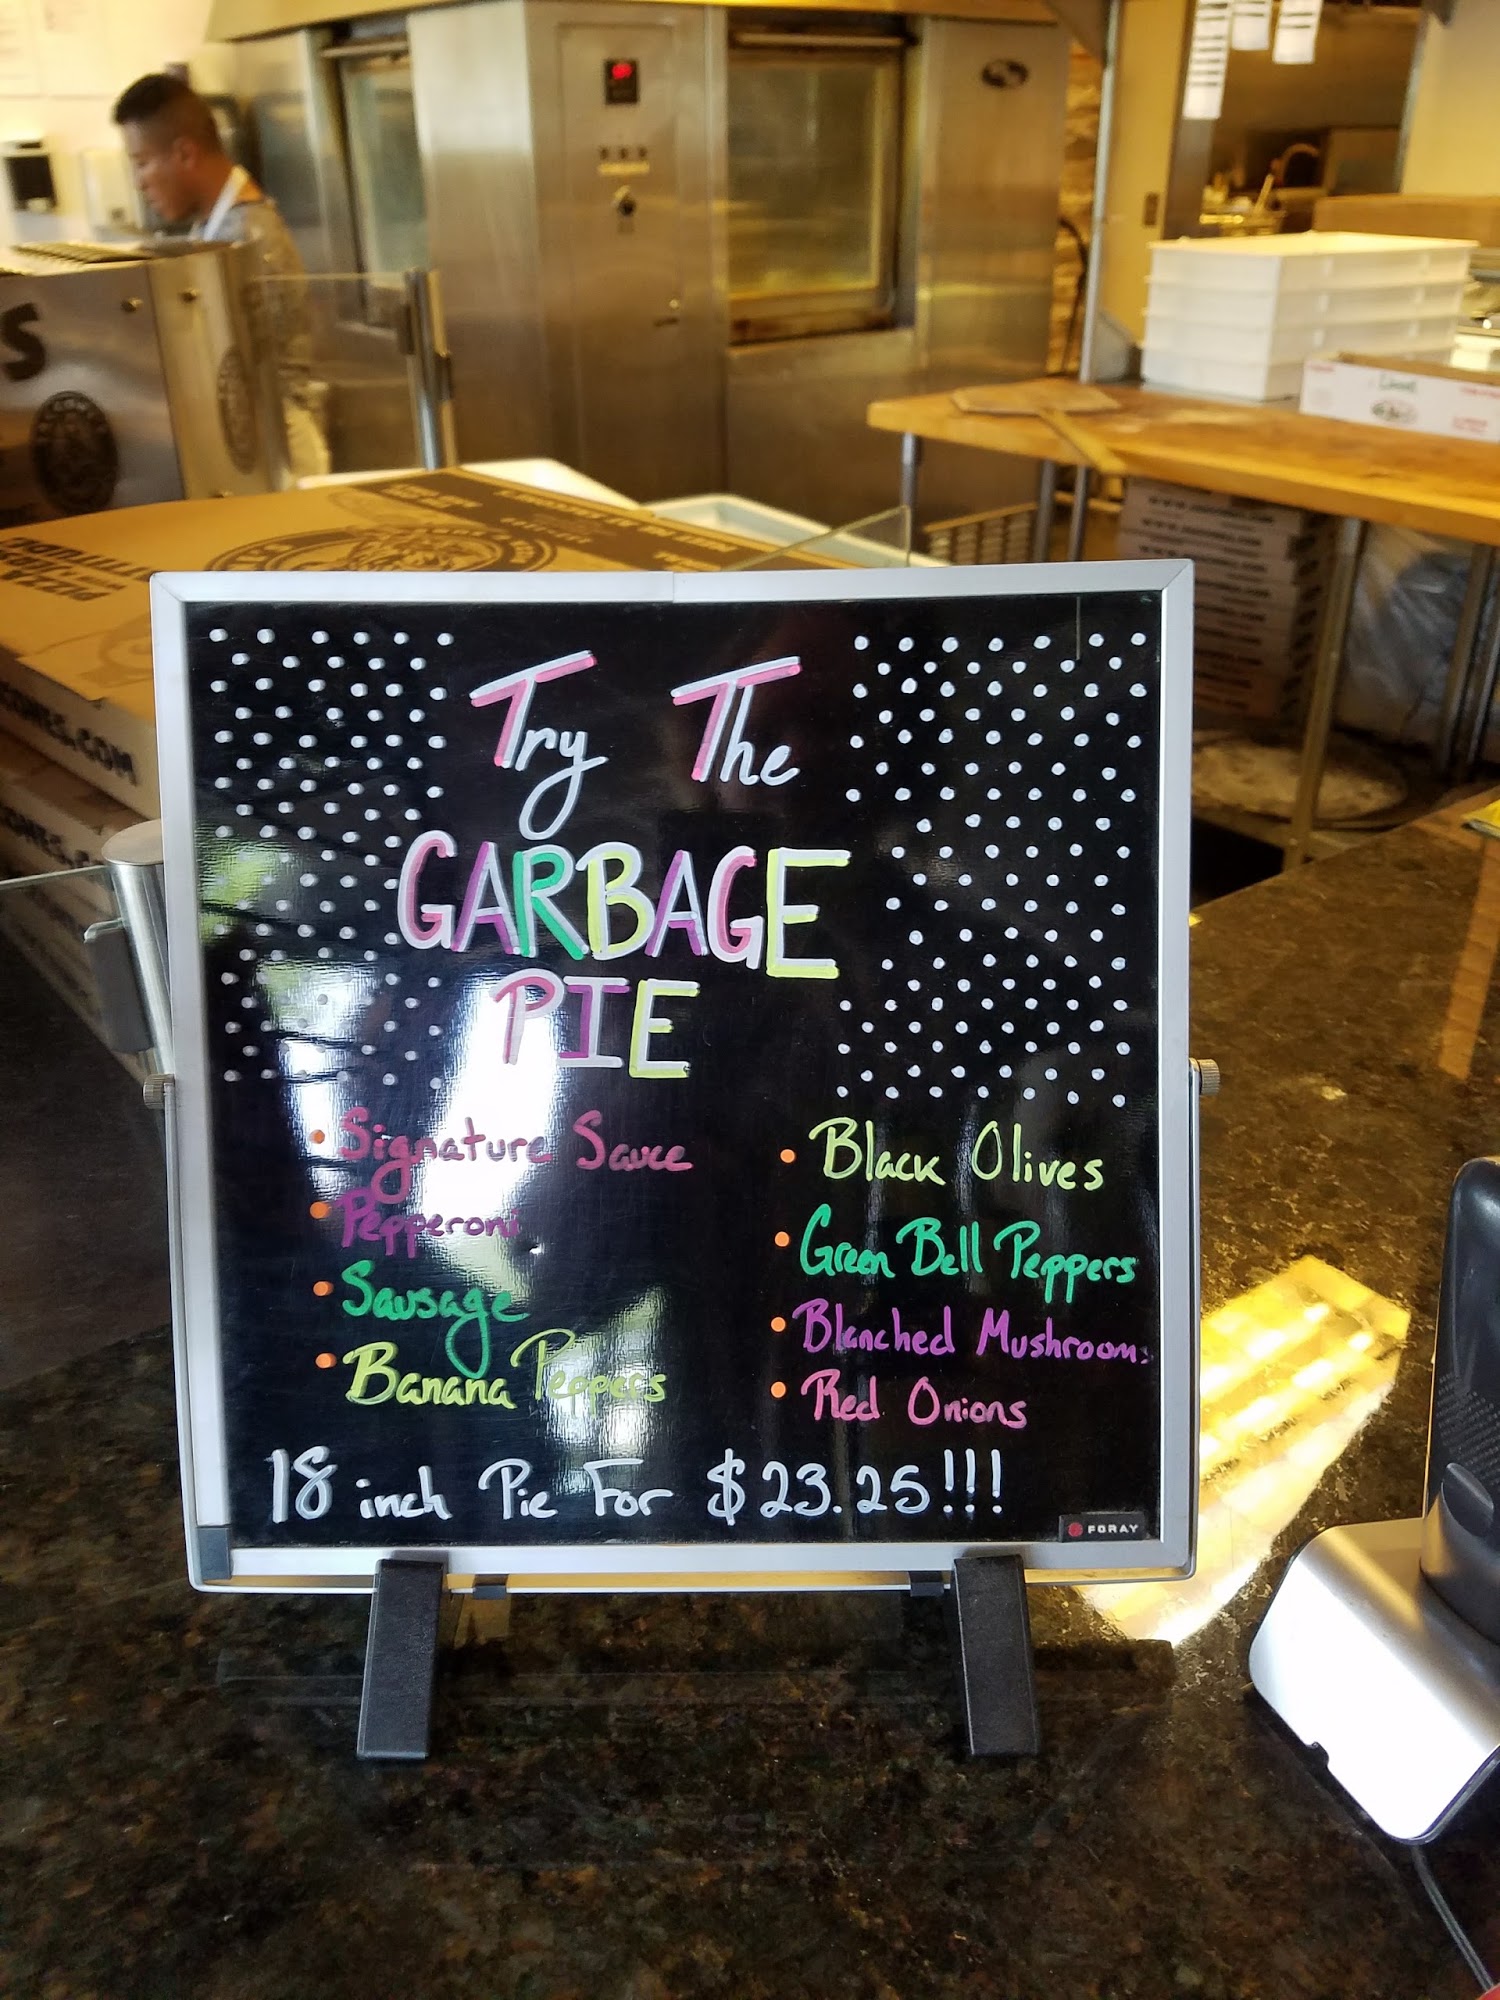 Try The
GARBAGE
PIE
• Signature Sauce
• Pepperoni
• Sausage
• Banana Peppers
• Black Olives
• Green Bell Peppers
• Blanched Mushrooms
• Red Onions
18 inch Pie For $23.25!!!
FORAY
PIZZA
ONES.COM